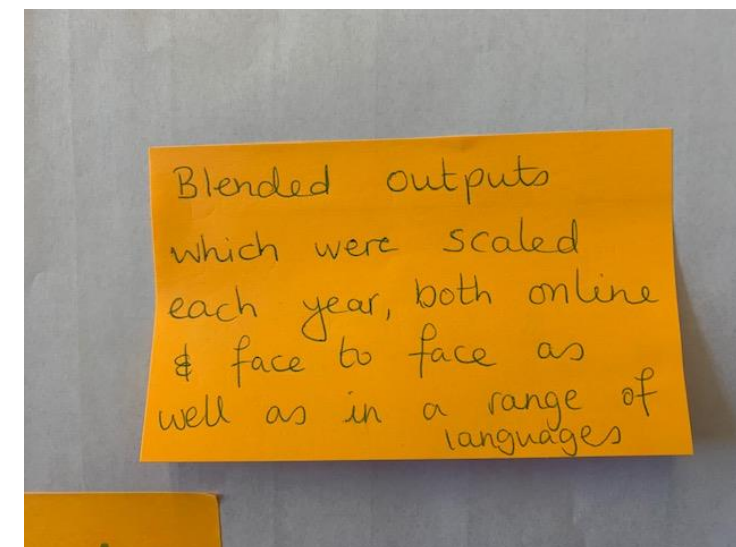 Blended outputs
which were scaled
each year, both online
& face to face as
well as in a range of
languages